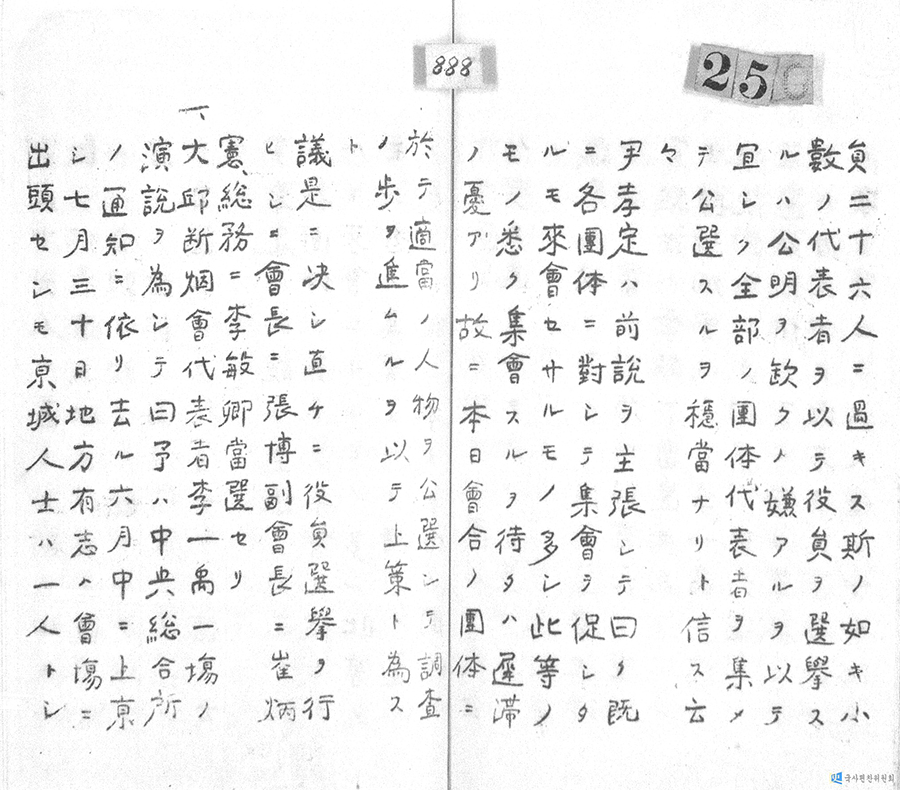 888
25
員二十六人ニ過キス斯ノ如キ小
數ノ代表者ヲ以テ役員ヲ選擧ス
ルハ公明ヲ欽クノ嫌アルヲ以テ
宜シク全部ノ團体代表者ヲ集メ
テ公選スルヲ穩當ナリト信ス云
々
尹孝定ハ前說ヲ主張シテ曰ク既
ニ各團体ニ對シテ集會ヲ促シタ
ルモ來會セサルモノ多シ此等ノ
モノ悉ク集會スルヲ待タハ遲滯
ノ憂アリ故ニ本日會合ノ團体ニ
於テ適當ノ人物ヲ公選シテ調査
ノ步ヲ進ムルヲ以テ上策ト為ス
ト
議是ニ决シ直チニ役員選擧ヲ行
ヒシニ會長ニ張博副會長ニ崔炳
憲総務ニ李敏卿當選セリ
一、大邱断烟會代表者李一禹一塲ノ
演說ヲ為シテ曰予ハ中央総合所
ノ通知ニ依リ去ル六月中ニ上京
シ七月三十日地方有志ハ會塲ニ
出頭セシモ京城人士ハ一人トシ
국사편찬위원회